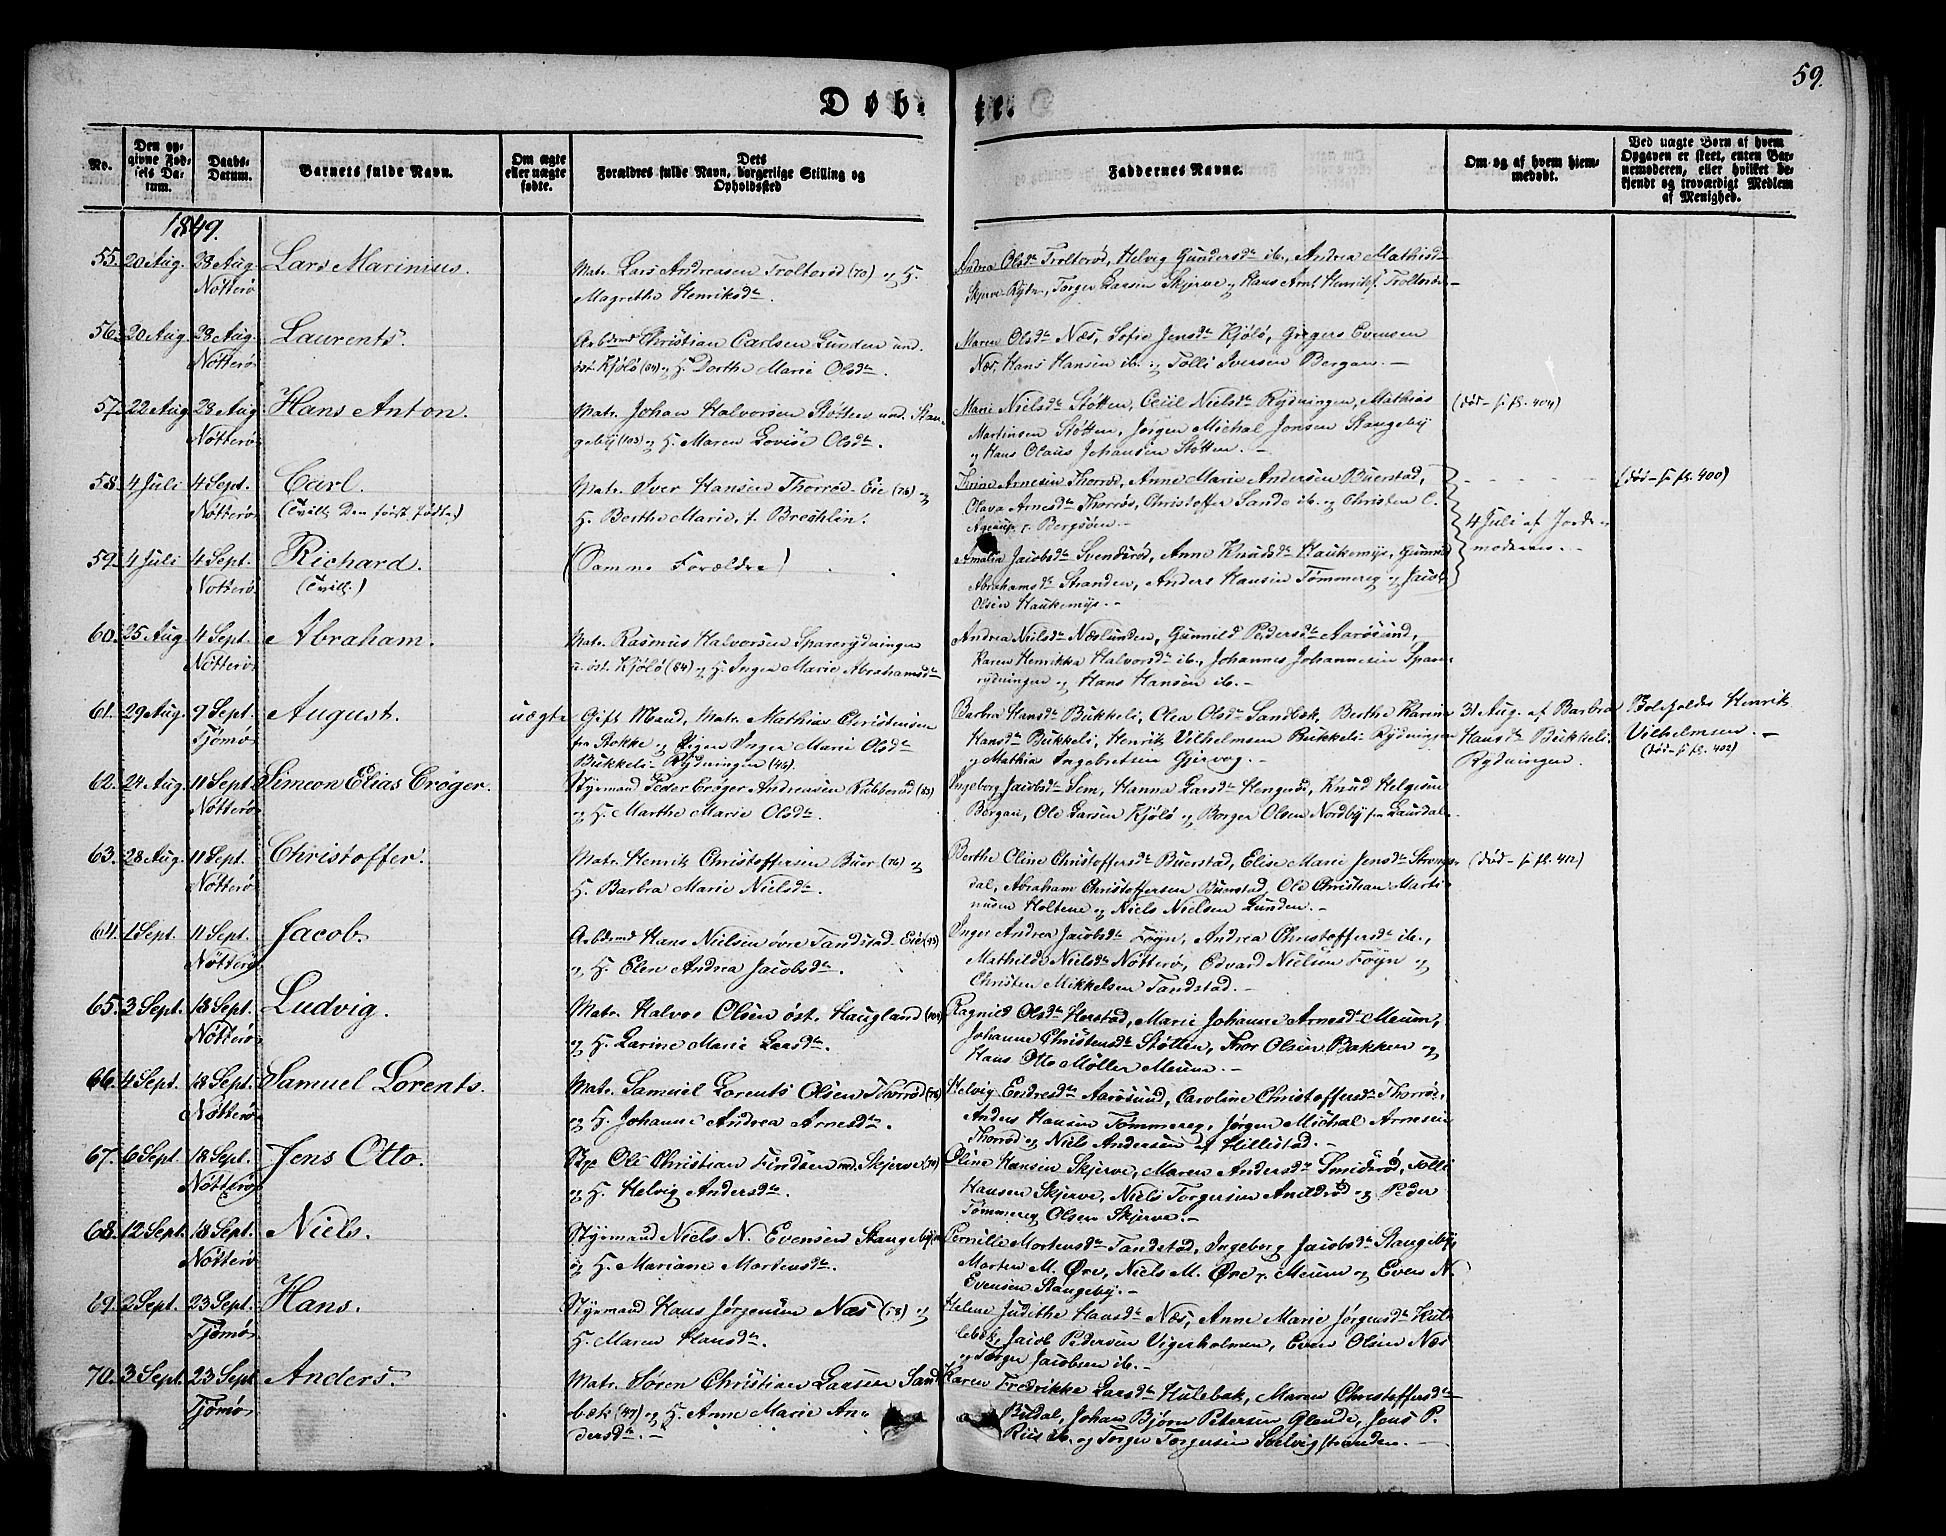 59.
Døb- te.
No.
Den opgivne Fødsels Datum.
Daabs-Datum.
Barnets fulde Navn.
Om ægte eller uægte fødte.
Dets Forældres fulde Navn, borgerlige Stilling og Opholdssted
Faddernes Navne.
Om og af hvem hjemmedøbt.
Ved uægte Børn af hvem Opgaven er skeet, enten Barnemoderen, eller hvilket bekjendt og troværdigt Medlem af Menighed.
1849.
55. 20 Aug. 28 Aug. Nötterö Lars Marinius.
Matr. Lars Andreasen Trolterød (70) og H.
Magrethe Henriksdr.
Andrea Olsdr Trolterød, Helvig Gundersdr ib., Andrea Mathisdr
Skjerve-Rydn., Torger Larsen Skjerve og Hans Arnt Henriks. Trolterød.
56. 20 Aug. 28 Aug. Nötterö Laurents.
Arbdmd Christian Carlsen Lunden und.
öst. Kjölö (84) og H. Dorthe Marie Olsdr.
Maren Olsdr Næs, Sofie Jensdr Kjölö, Gregers Evensen
Næs, Hans Hansen ib. og Tolli Iversen Bergan.
57. 22 Aug. 28 Aug. Nötterö Hans Anton.
Matr. Johan Halvorsen Støtten und. Stan-
geby (103) og H. Maren Lovise Olsdr.
Marie Nielsdr Støtten, Cecil Nielsdr Rydningen, Mathias
Martinsen Støtten, Jørgen Michal Jonsen Stangeby
og Hans Olaus Johansen Støtten.
(død - 404)
58. 4 Juli 4 Sept. Nötterö Carl.
(Tvill. Den først fødte.)
Matr. Iver Hansen Thorrød-Eie (76) og
H. Berthe Marie, f. Brechlin.
Trine Arnesen Thorrød, Anne Marie Andersen Buerstad,
Olava Arnesdr Thorrød, Christoffer Sande ib. og Christen C.
Agerup Bergsöen.
4 Juli af Jorde-
moderen.
(død - 400)
59. 4 Juli 4 Sept. Nötterö Richard.
(Tvill.)
(Samme Forældre)
Amalia Jacobsdr Svendsrød, Anne Knudsdr Haukemyr, Gunnild
Abrahamsdr Stranden, Anders Hansen Tømmereg og Jacob
Olsen Haukemyr.
60. 25 Aug. 4 Sept. Nötterö Abraham.
Matr. Rasmus Halvorsen Sparerydningen
u. öst. Kjölö (84) og H. Inger Marie Abrahamsdr
Andrea Nielsdr Næslunden, Gunnild Pedersdr Aarøsund,
Karen Henrikke Halvorsdr ib., Johannes Johannesen Spare-
rydningen og Hans Hansen ib.
61. 29 Aug. 9 Sept. Tjømø August. uægte
Gift Mand, Matr. Mathias Christensen
fra Stokke og Pigen Inger Marie Olsdr
Bukkeli-Rydningen (46).
Barbra Hansdr Bukkeli, Olea Olsdr Sandbek, Berthe Karine
Hansdr Bukkeli, Henrik Vilhelmsen Bukkeli-Rydningen
og Mathia Ingebretsen Gjervog.
31 Aug. af Barbra
Hansdr Bukkeli-
Rydningen.
Henrik
Vilhelmsen.
(død - 402)
62. 24 Aug. 11 Sept. Nötterö Simeon Elias Crøger.
Styrmand Peder Crøger Andreasen Ribberød (83)
og H. Marthe Marie Olsdr.
Ingeborg Jacobsdr Sem, Hanna Larsdr Hengsrød, Knud Helgesen
Bergan, Ole Larsen Kjölö og Borger Olsen Nordby fra Laurdal.
63. 28 Aug. 11 Sept. Nötterö Christoffer.
Matr. Henrik Christoffersen Buer (76) og
H. Barbra Marie Nielsdr.
Berthe Oline Christoffersdr Buerstad, Elise Marie Jensdr Stromps-
dal, Abraham Christoffersen Buerstad, Ole Christian Marti-
nusen Holtene og Niels Nielsen Lunden.
(død - 412)
64. 1 Sept. 11 Sept. Nötterö Jacob.
Arbdmd Hans Nielsen övre Tandstad-Eie (93)
og H. Elen Andrea Jacobsdr.
Inger Andrea Jacobsdr Föyn, Andrea Christoffersdr ib.,
Mathilde Nielsdr Nötterö, Edvard Nielsen Föyn og
Christen Mikkelsen Tandstad.
65. 2 Sept. 18 Sept. Nötterö Ludvig.
Matr. Halvor Olsen öst. Haugland (104)
og H. Larine Marie Larsdr.
Ragnild Olsdr Herstad, Marie Johanne Arnesdr Meum,
Johanne Christensdr Støtten, Thor Olsen Bakken og
Hans Otto Møller Meum.
66. 4 Sept. 18 Sept. Nötterö Samuel Lorents.
Matr. Samuel Lorents Olsen Thorrød (76)
og H. Johanne Andrea Arnesdr.
Helvig Endresdr Aarøsund, Caroline Christoffersdr Thorrød,
Anders Hansen Tømmereg, Jørgen Michal Arnesen
Thorrød og Niels Andersen af Hillestad.
67. 6 Sept. 18 Sept. Nötterö Jens Otto.
Skp. Ole Christian Findsen m. Skjerve (70)
og H. Helvig Andersdr.
Oline Hansen Skjerve, Maren Andersdr Smidsrød, Tolli
Hansen Skjerve, Niels Torgersen Arildsrød og Peder
Tømmereg Olsen Skjerve.
68. 12 Sept. 18 Sept. Nötterö Niels.
Styrmand Niels N. Evensen Stangeby
og H. Mariane Mortensdr.
Pernille Mortensdr Tandstad, Ingeborg Jacobsdr Stangeby
Morten M. Øre, Niels M. Øre, Meum og Even N.
Evensen Stangeby.
69. 2 Sept. 23 Sept. Tjømø Hans.
Styrmand Hans Jørgensen Næs (58) og
H. Maren Hansdr.
Helene Judithe Hansdr Næs, Anne Marie Jørgensdr Hul-
lebak, Jacob Pedersen Vigerholmen, Even Olsen Næs
og Torger Jacobsen ib.
70. 3 Sept. 23 Sept. Tjømø Anders.
Matr. Søren Christian Larsen Sand-
bæk (47) og H. Anne Marie An-
dersdr.
Karen Fredrikke Larsdr Hulebak, Maren Christoffersdr
Budal, Johan Bjørn Petersen Glende, Jens P.
Riis ib. og Torger Torgersen Solvigstranden.